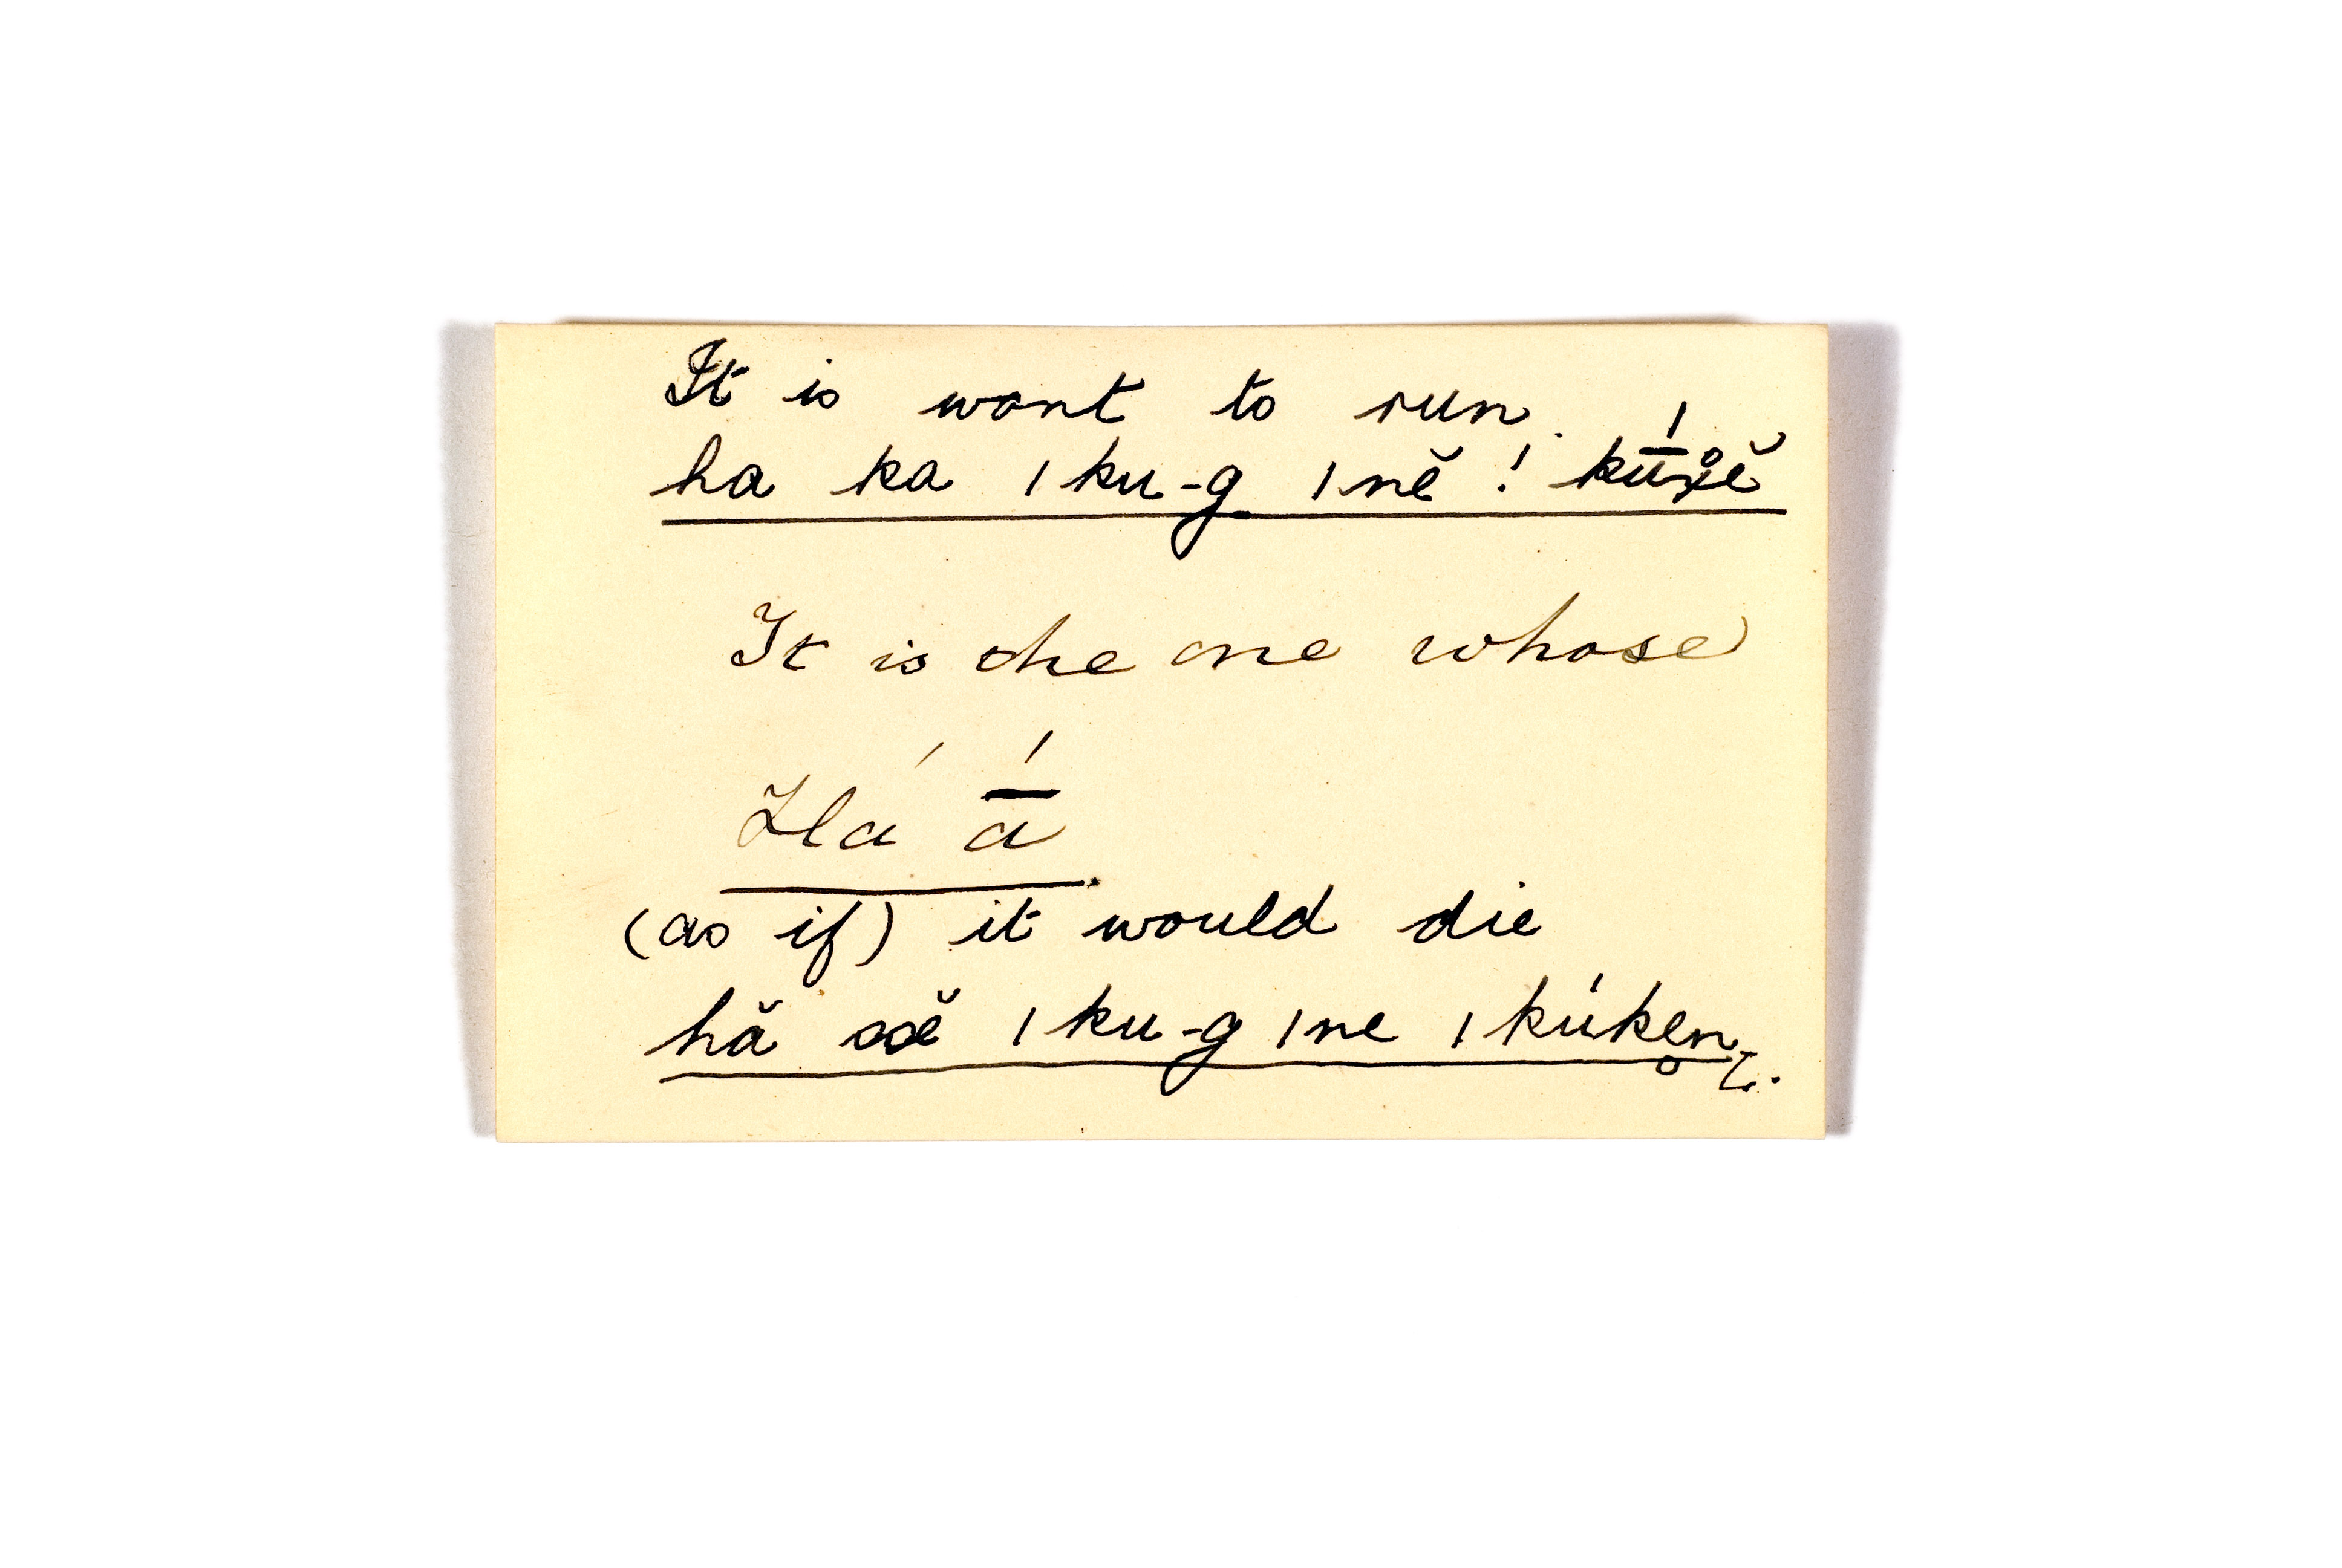 It is wont to run.
ha ka ǀku-g ǀnĕ ! kū́x̊ĕ
It is the one whose
Há ā́
(as if) it would die
hă sĕ ǀku-g ǀne ǀkúken̥ʒ.